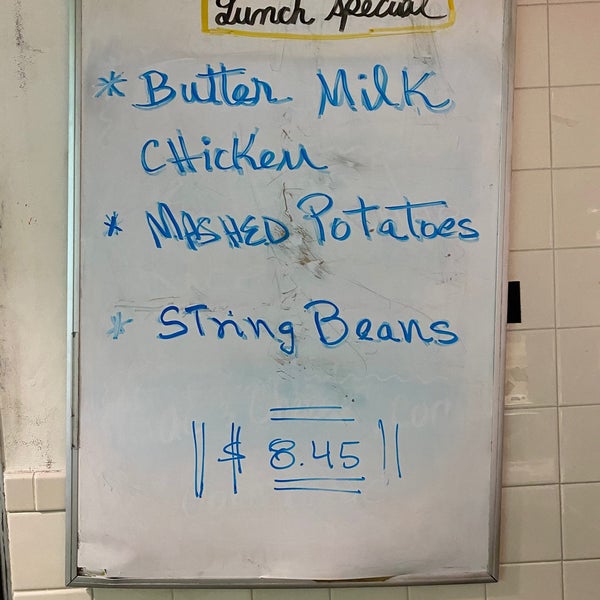 Lunch Special
* Butter Milk
Chicken
* MASHED Potatoes
* String Beans
$ 8.45